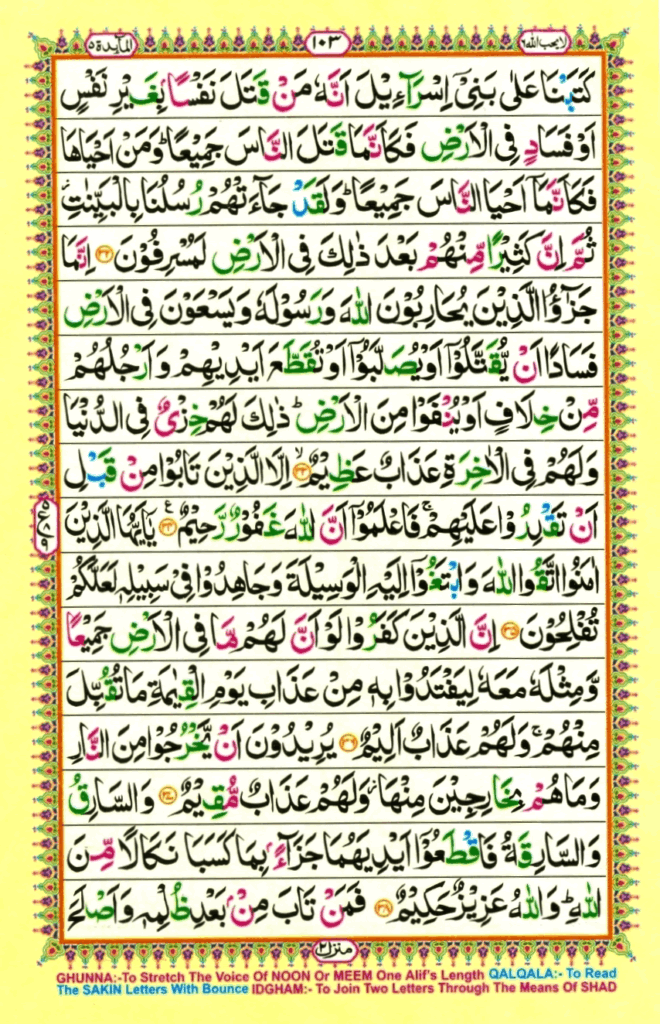 المآىدة ٥
١٠٣
لا يحب الله ٦
كَتَبْنَا عَلٰى بَنِىْٓ اِسْرَآءِيْلَ اَنَّهٗ مَنْ قَتَلَ نَفْسًاۢ بِغَيْرِ نَفْسٍ
اَوْ فَسَادٍ فِى الْاَرْضِ فَكَاَنَّمَا قَتَلَ النَّاسَ جَمِيْعًا ؕ وَمَنْ اَحْيَاهَا
فَكَاَنَّمَاۤ اَحْيَا النَّاسَ جَمِيْعًا ؕ وَلَقَدْ جَآءَتْهُمْ رُسُلُنَا بِالْبَيِّنٰتِ ؗ
ثُمَّ اِنَّ كَثِيْرًا مِّنْهُمْ بَعْدَ ذٰلِكَ فِى الْاَرْضِ لَمُسْرِفُوْنَ ﴿۳۲﴾ اِنَّمَا
جَزٰٓؤُا الَّذِيْنَ يُحَارِبُوْنَ اللّٰهَ وَرَسُوْلَهٗ وَيَسْعَوْنَ فِى الْاَرْضِ
فَسَادًا اَنْ يُّقَتَّلُوْۤا اَوْ يُصَلَّبُوْۤا اَوْ تُقَطَّعَ اَيْدِيْهِمْ وَاَرْجُلُهُمْ
مِّنْ خِلَافٍ اَوْ يُنْفَوْا مِنَ الْاَرْضِ ؕ ذٰلِكَ لَهُمْ خِزْىٌ فِى الدُّنْيَا
وَلَهُمْ فِى الْاٰخِرَةِ عَذَابٌ عَظِيْمٌ ۙ﴿۳۳﴾ اِلَّا الَّذِيْنَ تَابُوْا مِنْ قَبْلِ
اَنْ تَقْدِرُوْا عَلَيْهِمْ ۚ فَاعْلَمُوْۤا اَنَّ اللّٰهَ غَفُوْرٌ رَّحِيْمٌ ﴿۳۴﴾ يٰۤاَيُّهَا الَّذِيْنَ
اٰمَنُوا اتَّقُوا اللّٰهَ وَابْتَغُوْۤا اِلَيْهِ الْوَسِيْلَةَ وَجَاهِدُوْا فِىْ سَبِيْلِهٖ لَعَلَّكُمْ
تُفْلِحُوْنَ ﴿۳۵﴾ اِنَّ الَّذِيْنَ كَفَرُوْا لَوْ اَنَّ لَهُمْ مَّا فِى الْاَرْضِ جَمِيْعًا
وَّمِثْلَهٗ مَعَهٗ لِيَفْتَدُوْا بِهٖ مِنْ عَذَابِ يَوْمِ الْقِيٰمَةِ مَا تُقُبِّلَ
مِنْهُمْ ۚ وَلَهُمْ عَذَابٌ اَلِيْمٌ ﴿۳۶﴾ يُرِيْدُوْنَ اَنْ يَّخْرُجُوْا مِنَ النَّارِ
وَمَا هُمْ بِخَارِجِيْنَ مِنْهَا ؗ وَلَهُمْ عَذَابٌ مُّقِيْمٌ ﴿۳۷﴾ وَالسَّارِقُ
وَالسَّارِقَةُ فَاقْطَعُوْۤا اَيْدِيَهُمَا جَزَآءًۢ بِمَا كَسَبَا نَكَالًا مِّنَ
اللّٰهِ ؕ وَاللّٰهُ عَزِيْزٌ حَكِيْمٌ ﴿۳۸﴾ فَمَنْ تَابَ مِنْۢ بَعْدِ ظُلْمِهٖ وَاَصْلَحَ
منزل ٢
GHUNNA:-To Stretch The Voice Of NOON Or MEEM One Alif's Length QALQALA:- To Read
The SAKIN Letters With Bounce IDGHAM:- To Join Two Letters Through The Means Of SHAD